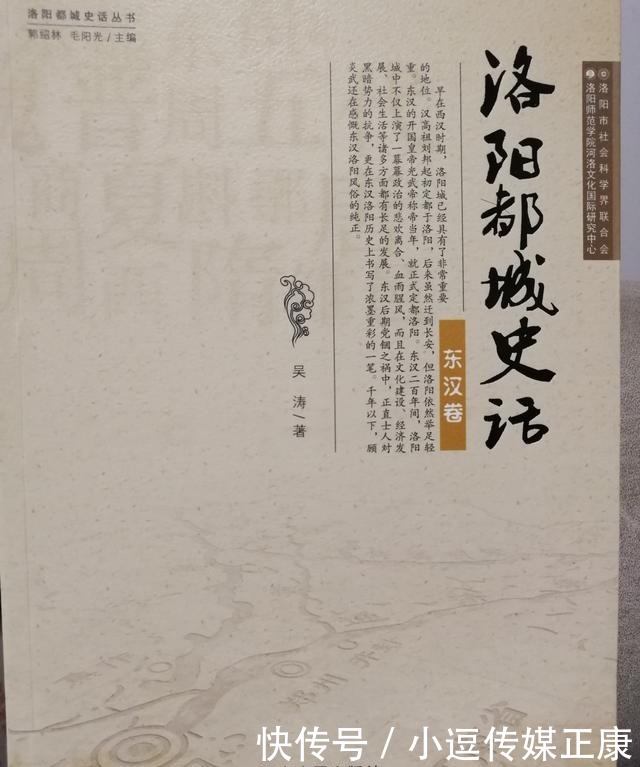 洛阳都城史话丛书
郭绍林 毛阳光/主编
洛阳市社会科学界联合会
洛阳师范学院河洛文化国际研究中心
洛阳都城史话
东汉卷
早在西汉时期，洛阳城已经具有了非常重要
的地位。汉高祖刘邦起初定都于洛阳，后来虽然迁到长安，但洛阳依然举足轻
重。东汉的开国皇帝光武帝称帝当年，就正式定都洛阳。东汉二百年间，洛阳
城中不仅上演了一幕幕政治的悲欢离合、血雨腥风，而且在文化建设、经济发
展、社会生活等诸多方面都有长足的发展。东汉后期党锢之祸中，正直士人对
黑暗势力的抗争，更在东汉洛阳历史上书写了浓墨重彩的一笔。千年以下，顾
炎武还在感慨东汉洛阳风俗的纯正。
吴涛/著
郑州 开封
洛
快传号/小逗传媒正康